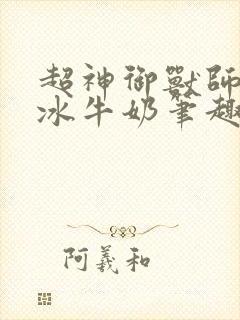 超神御獸師
冰牛奶筆趣
阿義和